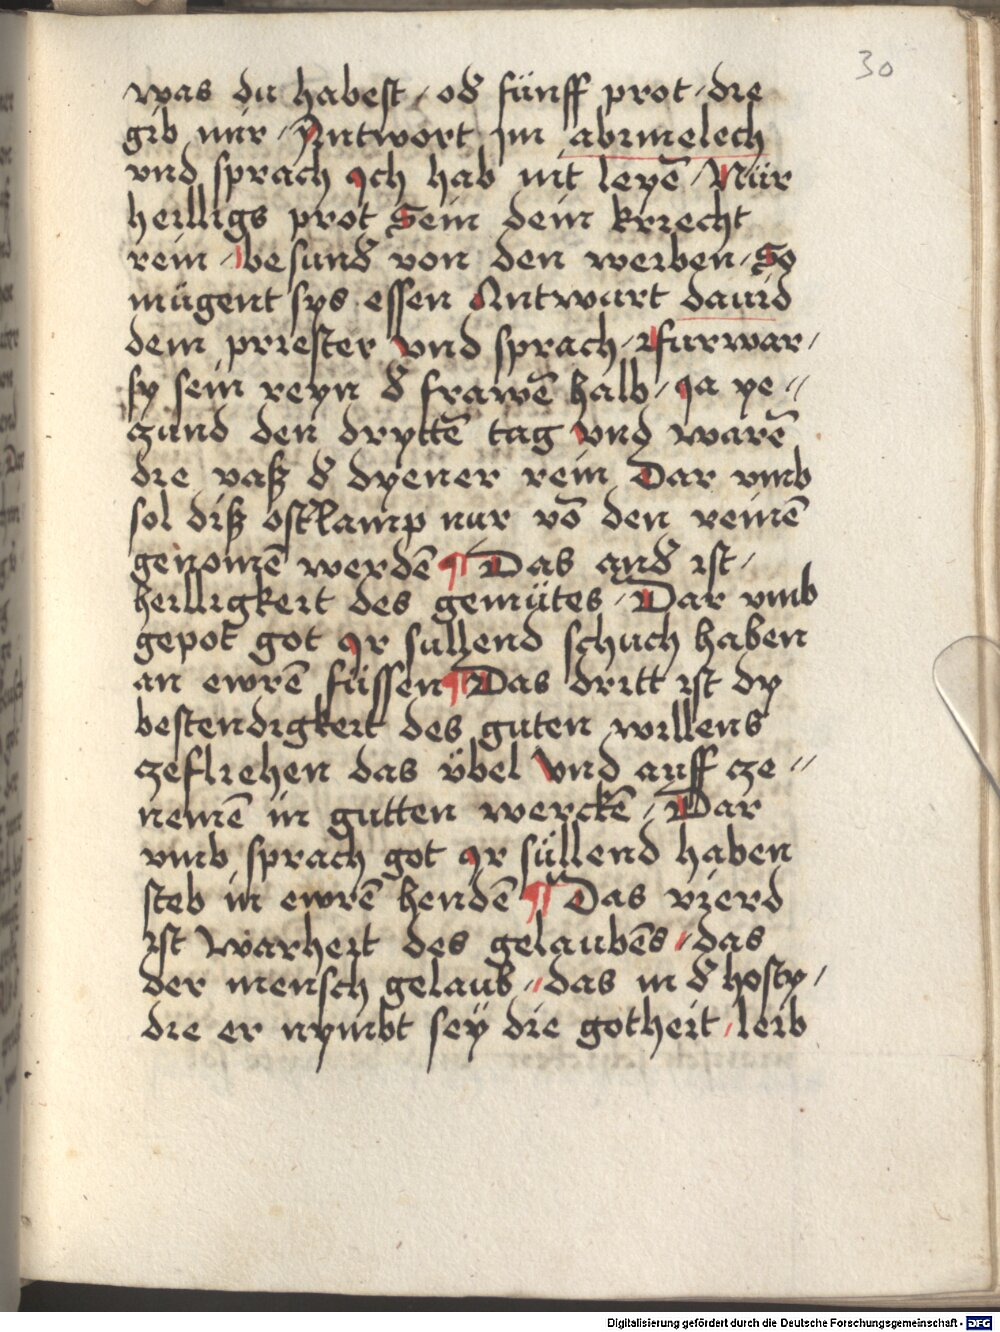 30
was du habest / od' fünff prot / die
gib mir / Antwort im abimelech
vnd sprach Ich hab nit leyē / Nür
heilligs prot Sein dein knecht
rein / besund' von den weiben / So
mügent sys essen Antwurt dauid
dem priester vnd sprach / Furwar /
sy sein reyn d' frawē halb / Ja ye〃
czund den drytte͂ tag vnd warē
die vaß d' dyener rein Dar vmb
sol diß ost'lamp nur vō den reinē
genomē werdē ¶ Das and' ist /
heilligkeit des gemütes / Dar vmb
gepot got Ir sullend schuch haben
an ewrē füssen ¶ Das dritt ist dy
bestendigkeit des guten willens
czefliehen das übel Vnd auff cze〃
nemē in gutten werckē / Dar
vmb sprach got Ir süllend haben
steb in ewrē hendē ¶ Das vierd
ist warheit des gelaubēs / das
der mensch gelaub〃 das in d' hosty /
die er nymbt seÿ die gotheit / leib
Digitalisierung gefördert durch die Deutsche Forschungsgemeinschaft - DFG